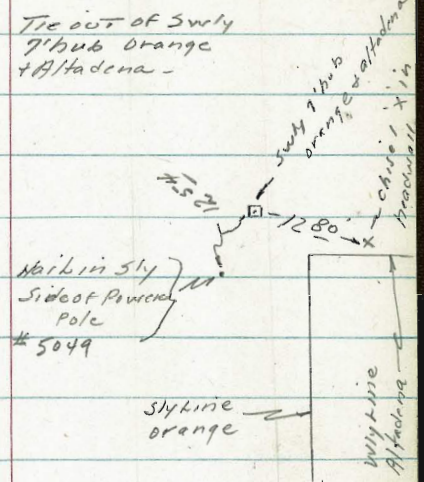 Tie out of Swly
7' hub Orange
+ Altadena -
Swly 7' hub
Orange + Altadena
chisel x in
headwall
1280
x
Nail in Sly
Side of Power
Pole
# 5049
Sly Line
Orange
Wly Line
Altadena